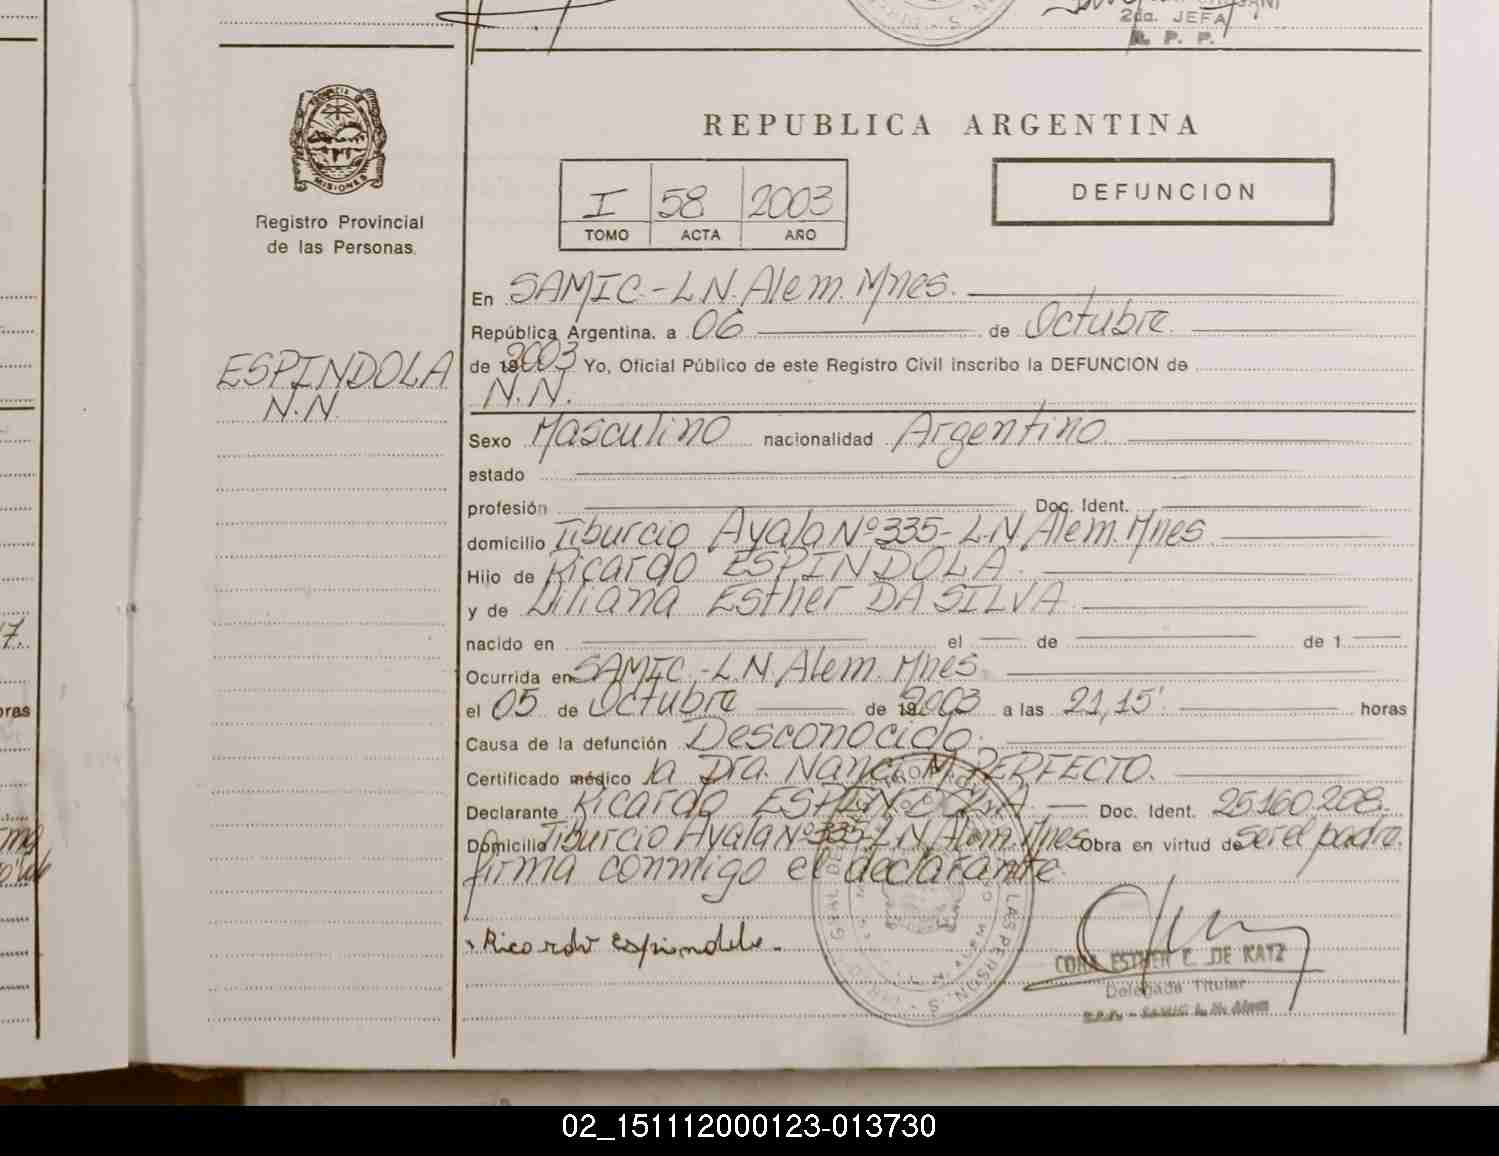 2da. JEFA
R. P. P.
MISIONES
Registro Provincial
de las Personas
REPUBLICA ARGENTINA
I 58 2003
TOMO ACTA AÑO
DEFUNCION
ESPINDOLA
N.N.
En SAMIC.-L.N.Alem.Mnes.
República Argentina, a 06 de Octubre
de 2003 Yo, Oficial Público de este Registro Civil inscribo la DEFUNCION de
N.N.
Sexo Masculino nacionalidad Argentino
estado
profesión Doc. Ident.
domicilio Tiburcio Ayala Nº335-L.N.Alem.Mnes
Hijo de Ricardo ESPINDOLA
y de Liliana Esther DA SILVA
nacido en el de de 1
Ocurrida en SAMIC.-L.N.Alem.Mnes
el 05 de Octubre de 2003 a las 21,15' horas
Causa de la defunción Desconocido.
Certificado médico la Dra. Nanci M. PERFECTO.
Declarante Ricardo ESPINDOLA Doc. Ident. 25.160.208.
Domicilio Tiburcio Ayala Nº335-L.N.Alem.Mnes Obra en virtud de ser el padre.
firma conmigo el declarante
Ricardo Espindola
ESTHER C. DE KATZ
Delegada Titular
LAS PERSONAS
7.
oras
02_151112000123-013730